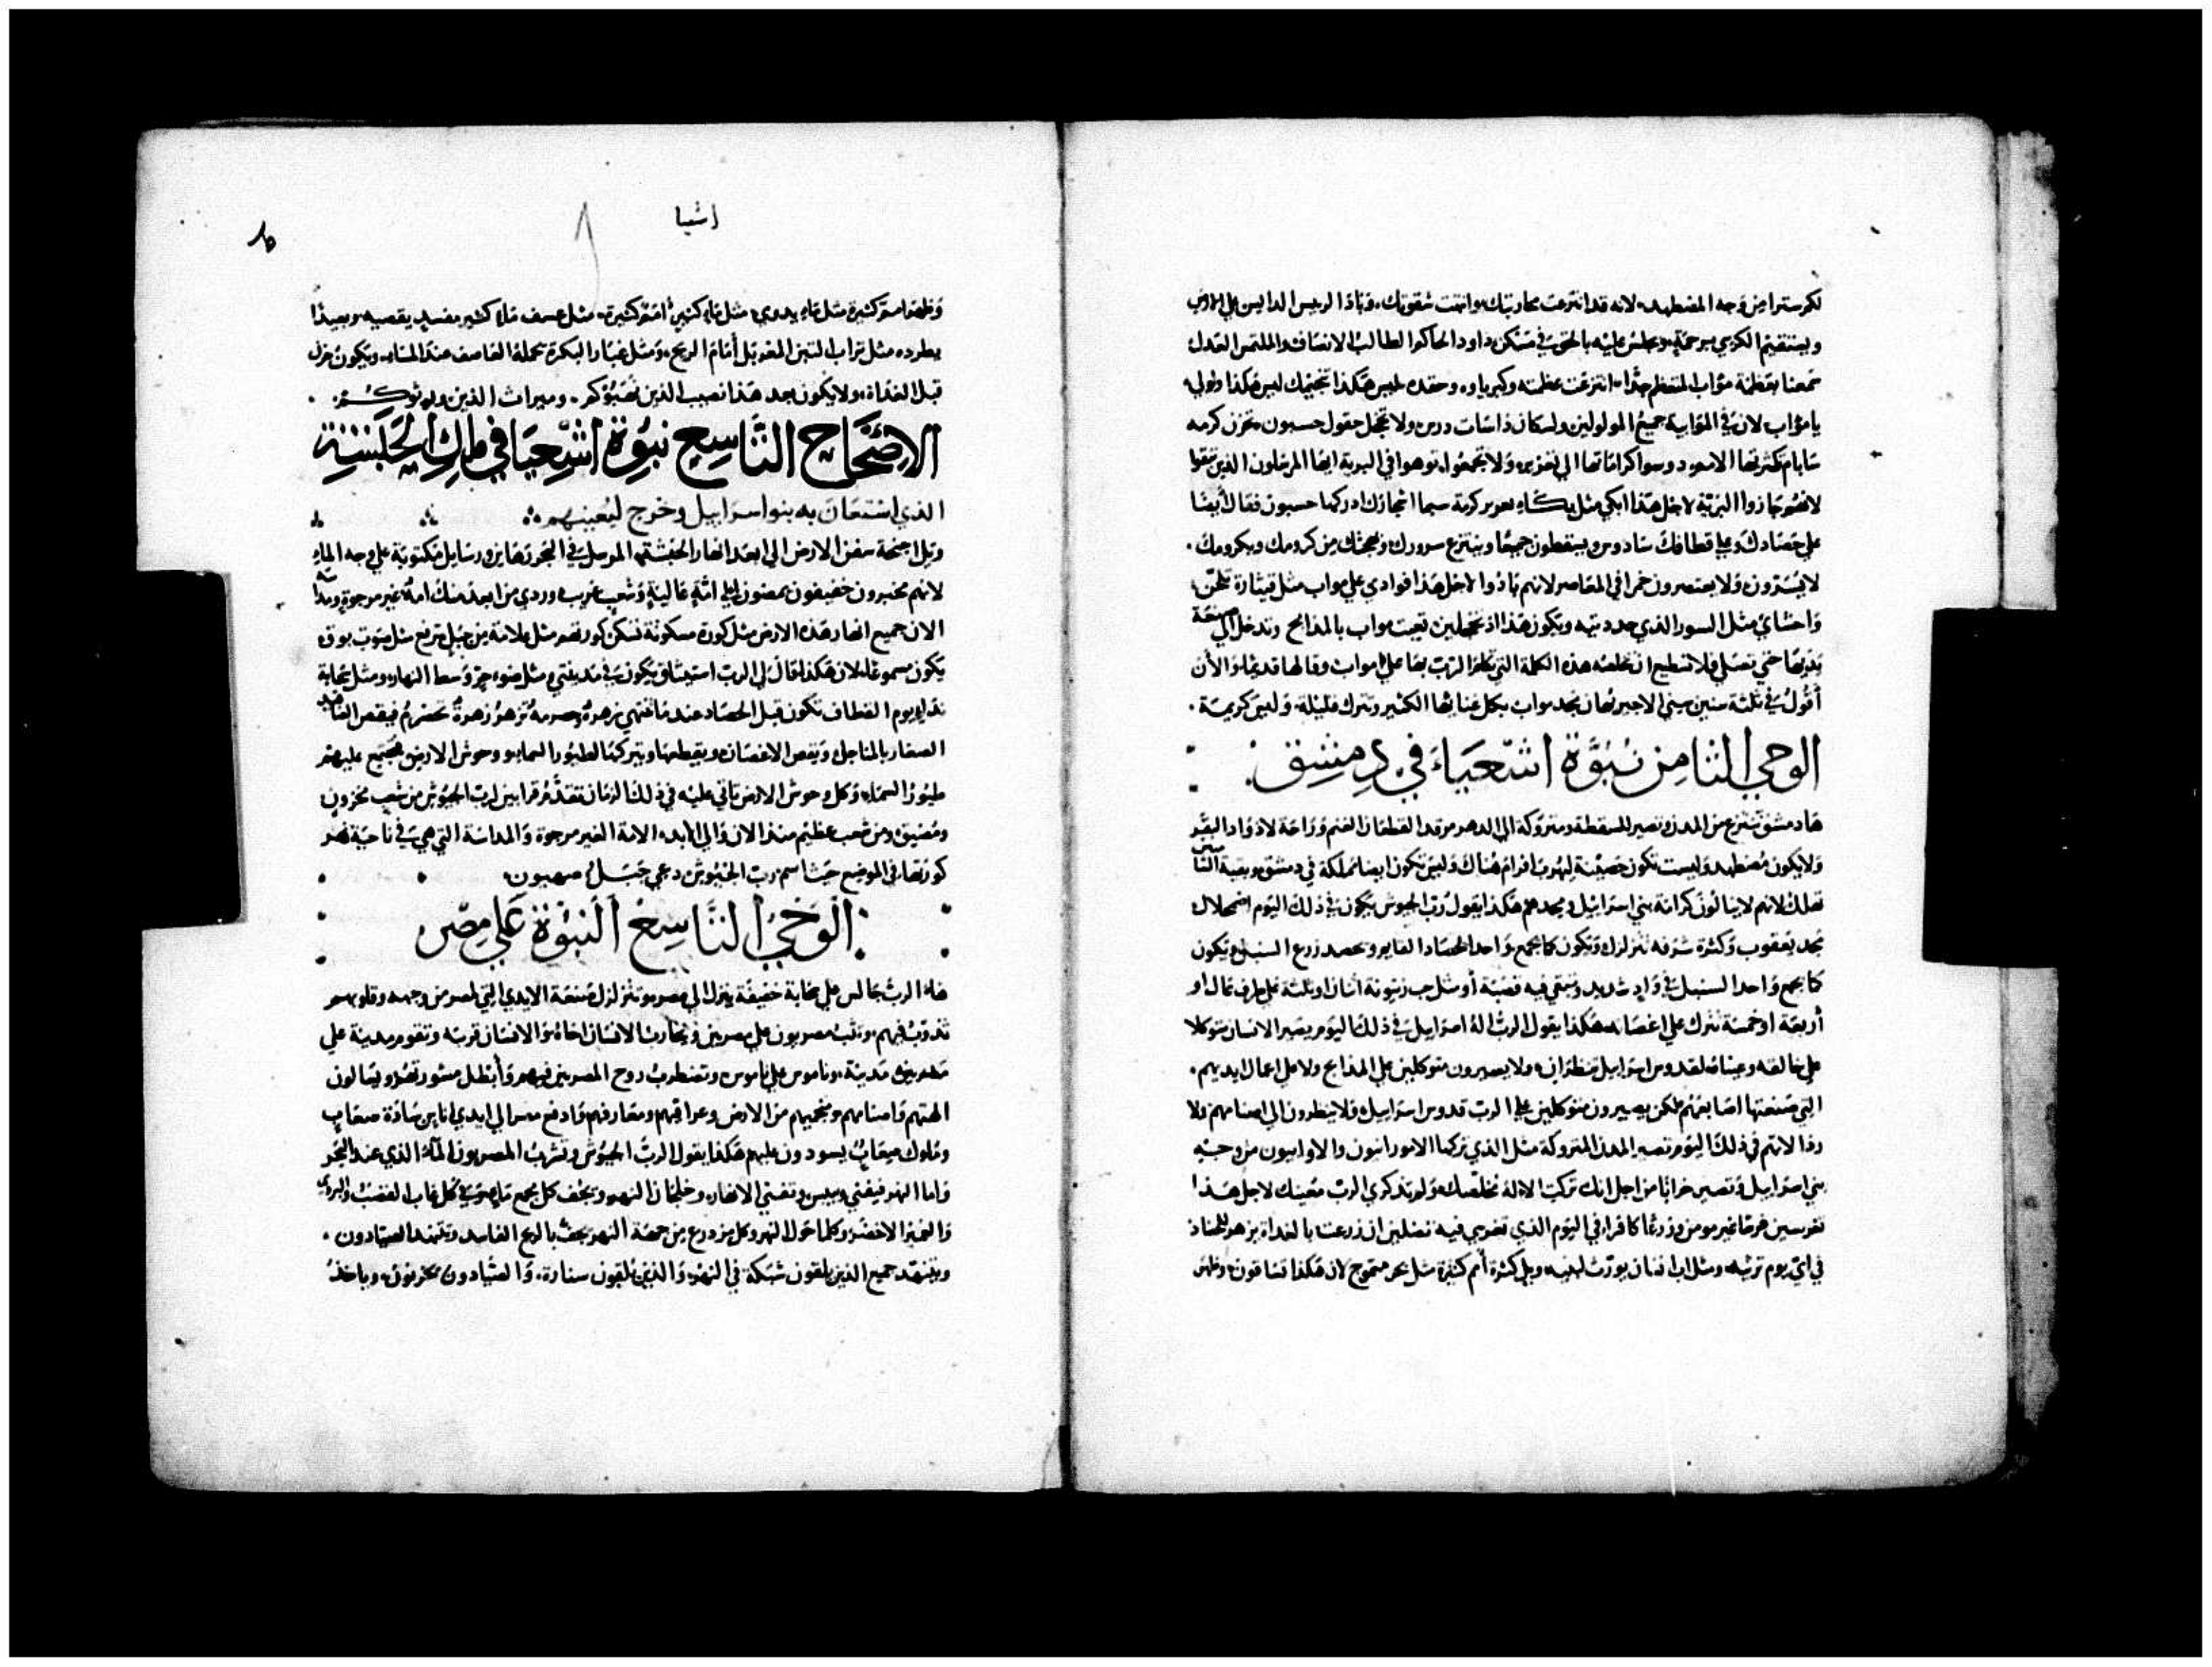 لكم سترا من وجه المضطهد، لانه قد انتزعت محاربتك، وانتهت شقوتك، وباد الرييس الدايس علي الارض
ويستقيم الكرسي برحمةٍ، ويجلس عليه بالحق في مسكن داود الحاكم الطالب الانصاف والملتمس العدل
سمعنا بعظمة مواب المتعظم جدًا، انتزعت عظمته وكبرياوه، وحقده ليس هكذا تنجيمك ليس هكذا ولولي
يا مواب لان في الموابية جميع المولولين ولسكان ذاسات درس ولا تخجل حقول حسبون تحزن كرمه
سابام كثرتها الامم دوسوا كراماتها الي تعزير، ولا تجتمعوا، توهوا في البرية ايضا المرسلون الذين تبقوا
لانهم جازوا البرية لاجل هذا ابكي مثل بكاء يعزير كرمة سبما اشجارك ادركها حسبون فقال ايضا
علي حصادك وعلي قطافك سادوس ويسقطون جميعًا وينتزع سرورك وبهجتك من كرومك وبكرومك.
لا يسرون، ولا يعتصرون خمرا في المعاصر لانهم بادوا لاجل هذا فوادي علي مواب مثل قيثارة تلحّن
واحشاي مثل السور الذي جددته ويكون هذا اذ تخجلين تعبت مواب بالمذابح وتدخل الي صنعة
يديها حتي تصلي فلا تستطيع ان تخلصه هذه الكلمة التي تكلم الرب بها علي مواب وقالها قديمًا، والان
أقول في ثلثة سنين سني الاجير تهان مجد مواب بكل غنايها الكثير وتترك قليلة، وليس كريمة.
الوحي الثامن نبوَّة اشعياء في دمشق.
ها دمشق تنتزع من المدن وتصير للسقطة ومتروكة الي الدهر مرقد القطعان الغنم وراحة لاذواد البقر
ولا يكون مضطهد وليست تكون حصينة ليهرب افرام هناك وليس تكون ايضا مملكة في دمشق وبقية الناس
تهلك لانهم لا ينالون كرامة بني اسرائيل ومجدهم هكذا يقول رب الجيوش يكون في ذلك اليوم اضمحلال
مجد يعقوب وكثرة شرفه تتزلزل، ويكون كما يجمع واحد الحصاد القايم ويحصد زرع السنبل ويكون
كما يجمع واحد السنبل في وادٍ شديد وتبقي فيه قصبة أو مثل حب زيتونة اثنان او ثلثة علي طرف عال او
أربعة او خمسة تترك علي اغصانه، هكذا يقول الرب اله اسراييل في ذلك اليوم يصير الانسان متوكلا
علي خالقه وعيناه لقدوس اسراييل تنظران، ولا يصيرون متوكلين علي المذابح ولا علي اعمال ايديهم.
التي صنعتها اصابعهم لكن يصيرون متوكلين علي الرب قدوس اسراييل، فلا ينظرون الي اصنامهم ولا
رذالاتهم في ذلك اليوم تصير المدن المتروكة مثل الذي تركها الامورانيون والاوانيون من وجه
بني اسراييل وتصير خرابًا من اجل انك تركت الاله مخلصك ولم تذكري الرب معينك لاجل هذا
تغرسين غرسًا غير مومن وزرعًا كافرا، في اليوم الذي تغرسي فيه تضلين ان زرعت بالغداة يزهر للحصاد
في اي يوم ترثيه ومثل اب انسان يورّث لبنيه، ويل كثرة أمم كثيرة مثل بحر متموج لان هكذا تساقون، وظهر
اشعيا
وظهر امم كثيرة مثل ماء يدوي، مثل ماء كثير أمم كثيرة، مثل عسف ماء كثير مفسد يقصيه، وبعيدًا
يطرده مثل تراب التبن المغربل أمام الريح، ومثل غبار البكرة تحمله العاصف عند المساء، ويكون حزن
قبل الغداة، ولا يكون بعد هذا نصيب الذين نهبوكم، وميراث الذين ورثوكم.
الاصحاح التاسع نبوة اشعيا في ملك الحبشة
الذي استعان به بنو اسراييل وخرج ليعينهم
ويل اجنحة سفن الارض الي ابعد انهار الحبشة، المرسل في البحر رهاين ورسايل مكتوبة علي وجه الماء
لانهم مخبرون خفيفون يمضون الي امّةٍ عاليةٍ وشعبٍ غريب وردي من ابعد منك امة غير مرجوة ومداسة
الان جميع انهار هذه الارض مثل كورة مسكونة تسكن كورتهم مثل علامة من جبل ترفع مثل صوت بوق
يكون مسموعًا، لان هكذا قال لي الرب استيثاق يكون في مدينتي، مثل ضوء حرّ وسط النهار، ومثل سحابة
ندا، يوم القطاف تكون قبل الحصاد عندما تنتهي زهرة، وحصرمه تزهر زهرة تحصرم فيقص العناقيد
الصغار بالمناجل، ويقص الاغصان، ويقطعها، ويتركها لطيور السما، ووحوش الارض، يجتمع عليهم
طيور السماء، وكل وحوش الارض تاتي عليه في ذلك الزمان تقدّم قرابين لرب الجيوش من شعب محزون
ومضيق، ومن شعب عظيم منذ الان والي الابد، الامة الغير مرجوة والمداسة التي هي في ناحية نهر
كورتها، في الموضع حيث اسم رب الجيوش دعي جبل صهيون،
الوحي التاسع النبوة علي مصر
هاه الرب جالس علي سحابة خفيفة ينزل الي مصر وتتزلزل صنعة الايدي التي لمصر من وجهه وقلوبهم
تذوب فيهم، وتثب مصريون علي مصريين ويحارب الانسان اخاه، والانسان قريبه وتقوم مدينة علي
مدينة، وناموس علي ناموس، وتضطرب روح المصريين فيهم، وأبطل مشورتهم، ويسالون
الهتهم واصنامهم ومنجميهم من الارض وعرافيهم، ومعارفهم، وادفع مصر الي ايدي اناس سادة صعاب
وملوك صعابٌ يسودون عليهم هكذا يقول الرب الجيوش، وتشرب المصريون الماء الذي عند البحر
واما النهر فيفني وييبس، وتفني الانهار، وخلجان النهر، ويجف كل مجمع ماء، وفي كل غاب القصب والبردي
والخضر الاخضر، وكلما حول النهر وكل مزدرع من جهة النهر يجف بالريح الفاسد وتتنهد الصيادون.
ويتنهد جميع الذين يلقون شبكة في النهر، والذين يلقون سنارة، والصيادون يحزنون، وياخذ